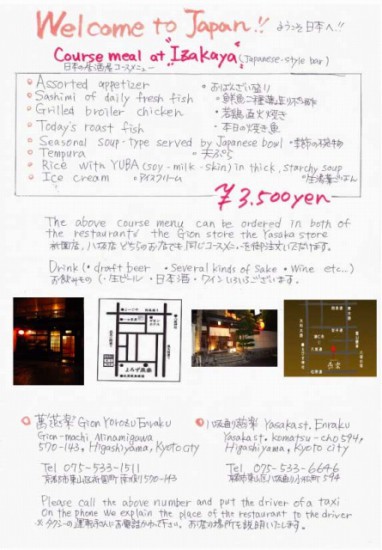 Welcome to Japan!! ようこそ日本へ!!
Course meal at "Izakaya" (Japanese-style bar)
日本の居酒屋コースメニュー
Assorted appetizer ・おばんざい盛り
Sashimi of daily fresh fish ・鮮魚二種
Grilled broiler chicken ・若鶏直火焼き
Today's roast fish ・本日の焼き魚
Seasonal soup-type served by Japanese bowl ・季節の椀物
Tempura ・天ぷら
Rice with YUBA (soy-milk-skin) in thick, starchy soup
Ice cream ・アイスクリーム
¥3,500yen
The above course menu can be ordered in both of
the restaurant the Gion store the Yasaka store
祇園店、八坂店どちらのお店でも同じコースメニューを御注文いただけます。
Drink (・draft beer ・Several kinds of Sake ・Wine etc...)
お飲みもの (・生ビール・日本酒・ワイン
萬燈楽 Gion Yorozu Enraku
Gion-machi Minamigawa
570-143, Higashiyama, Kyoto city
Tel 075-533-1511
京都市東山区祇園町南側570-143
Yasakast. Enraku
Yasakast. komatsu-cho 594,
Higashiyama, Kyoto city
Tel 075-533-6646
Please call the above number and put the driver of a taxi
On the phone we explain the place of the restaurant to the driver
※タクシーの運転手さんにお電話かわって下さい。お店の場所を説明いたします。